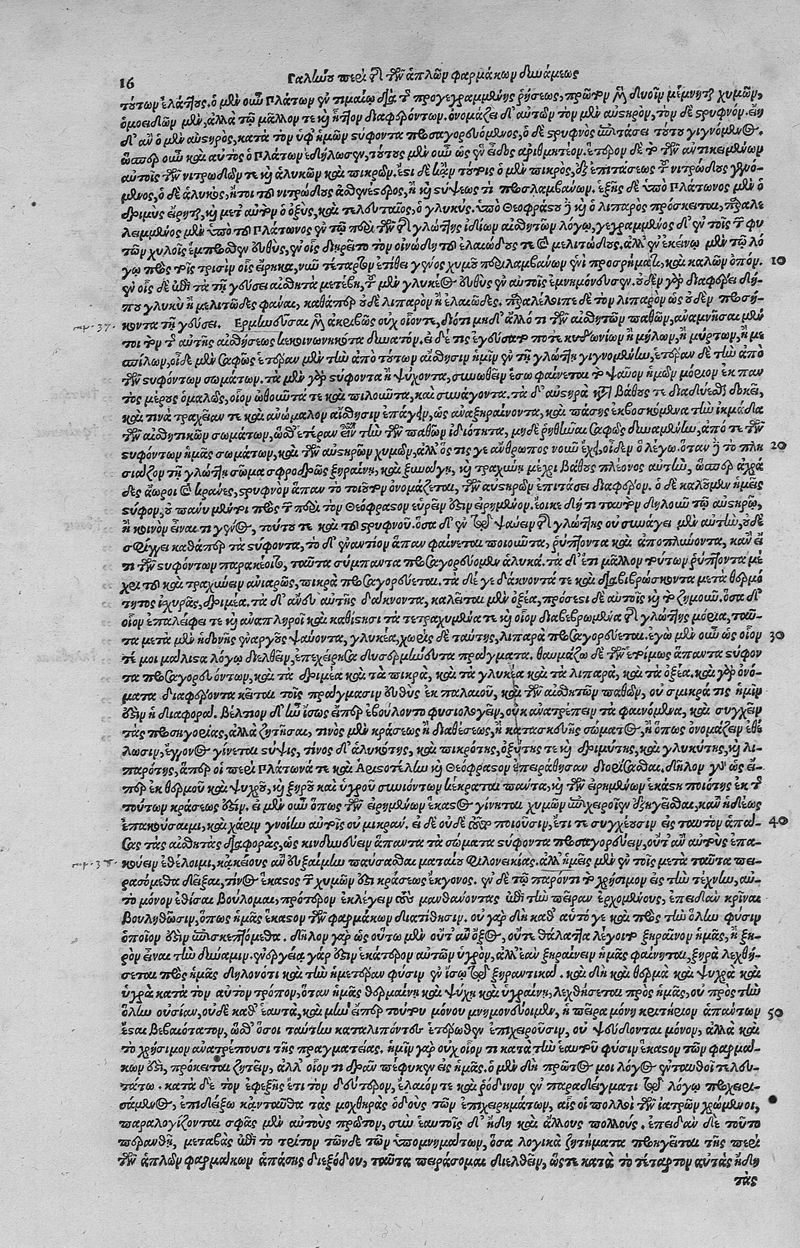 16 Γαληνοῦ περὶ τῆς τῶν ἁπλῶν φαρμάκων δυνάμεως
τούτων ἐλάττους. ὁ μὲν οὖν Πλάτων ἐν τιμαίῳ διὰ τῆς προγεγραμμένης ῥήσεως, πρῶτον μὲν δυοῖν μέμνηται χυμῶν,
ὁμοειδῶν μὲν, ἀλλὰ τῷ μᾶλλόν τε καὶ ἧττον διαφερόντων. ὀνομάζει δ' αὐτῶν τὸν μὲν αὐστηρὸν, τὸν δὲ στρυφνόν. εἴη
δ' ἂν ὁ μὲν αὐστηρὸς, κατὰ τὸν ὑφ' ἡμῶν στύφοντα προσαγορευόμενος, ὁ δὲ στρυφνὸς ἐπιτάσει τούτου γιγνόμενος.
ὥσπερ οὖν καὶ αὐτὸς ὁ Πλάτων ἐδήλωσεν, τούτους μὲν οὖν ὡς ἓν εἶδος ἀριθμητέον. ἕτερον δὲ τὸ τῶν ἀντικειμένων
αὐτοῖς τῶν νιτρωδῶν τε καὶ ἁλυκῶν καὶ πικρῶν. ἔστι δὲ κἀν τούτοις ὁ μὲν πικρὸς, ἐξ ἐπιτάσεως τοῦ νιτρώδους γενό-
μενος, ὁ δὲ ἁλυκὸς, ἤτοι τοῦ νιτρώδους ἀσθενέστερος, ἢ καὶ στύψεώς τι προσλαμβάνων. ἑξῆς δὲ ὑπὸ Πλάτωνος μὲν ὁ
δριμὺς εἴρηται, καὶ μετ' αὐτὸν ὁ ὀξὺς, καὶ τελευταῖος, ὁ γλυκύς. ὑπὸ Θεοφράστου δὲ καὶ ὁ λιπαρὸς πρόσκειται, παραλε-
λειμμένος μὲν ὑπὸ τοῦ Πλάτωνος ἐν τῷ περὶ τῶν τῆς γλώττης ἰδίων αἰσθητῶν λόγῳ, γεγραμμένος δ' ἐν τοῖς τῶν φυ-
τῶν χυλοῖς ἔμπροσθεν εὐθὺς, ἐν οἷς διῃρεῖτο τὸν οἰνώδη τοῦ ἐλαιώδους τε καὶ μελιτώδους, ἀλλ' ἐν ἐκείνῳ μὲν τῷ λό-
γῳ πρὸς τοῖς τρισὶν οἷς εἴρηκα, νῦν τέταρτον ἐτίθει γένος χυμοῦ περιλαμβάνων ἑνὶ προσρήματι, καὶ καλῶν ὀπόν. 10
ἐν οἷς δὲ ἐπὶ τὰ τῇ γεύσει αἰσθητὰ μετέβη, τοῦ μὲν γλυκέος εὐθὺς ἐν αὐτοῖς ἐμνημόνευσεν. οὐδὲν γὰρ διαφέρει δή-
που γλυκὺ ἢ μελιτῶδες φάναι, καθάπερ οὐδὲ λιπαρὸν ἢ ἐλαιῶδες. παρέλιπε δὲ τὸν λιπαρὸν ὡς οὐδὲν προσή-
κοντα τῇ γεύσει. Ἑρμηνεῦσαι μὲν ἀκριβῶς οὐχ οἷόν τε, διότι μηδ' ἄλλό τι τῶν αἰσθητῶν παθῶν, ἀναμνῆσαι μέν-
τοι τὸν τῆς αὐτῆς αἰσθήσεως κεκοινωνηκότα δυνατόν. εἰ δέ τις ἐγεύσατό ποτε κυδωνίων ἢ μήλων, ἢ μύρτων, ἢ με-
σπίλων, οἶδε μὲν σαφῶς ἑτέραν μὲν τὴν ἀπὸ τούτων αἴσθησιν ἡμῖν ἐν τῇ γλώττῃ γιγνομένην, ἑτέραν δὲ τὴν ἀπὸ
τῶν στυφόντων σωμάτων. τὰ μὲν γὰρ στύφοντα ἢ ψύχοντα, συνωθεῖν ἔσω φαίνεται τὸ ψαῦον ἡμῶν μόριον ἐκ παν-
τὸς μέρους ὁμαλῶς, οἷον ὠθοῦντά τε καὶ πιλοῦντα, καὶ συνάγοντα. τὰ δ' αὐστηρὰ κατὰ βάθους τε διαδύεσθαι δοκεῖ,
καί τινα τραχεῖάν τε καὶ ἀνώμαλον αἴσθησιν ἐπάγειν, ὡς ἀναξηραίνοντα, καὶ πάσης ἐκβοσκόμενα τὴν ἰκμάδα
τῶν αἰσθητικῶν σωμάτων, ὥσθ' ἑτέραν εἶναι τὴν τῶν παθῶν ἰδιότητα, μηδὲ ῥηθῆναι σαφῶς δυναμένην, ἀπό τε τῶν
στυφόντων ἡμᾶς σωμάτων, καὶ τῶν αὐστηρῶν χυμῶν, ἀλλ' ὅστις γε ἄνθρωπος νοῦν ἔχει, οἶδεν ὃ λέγω. ὅταν δὲ τὸ πλη- 20
σιάζον τῇ γλώττῃ σῶμα σφοδρῶς ξηραίνῃ, καὶ συνάγῃ, καὶ τραχύνῃ μέχρι βάθους πλέονος αὐτὴν, ὥσπερ ἀχρά-
δες ἄωροι καὶ κράνες, στρυφνὸν ἅπαν τὸ τοιοῦτον ὀνομάζεται, τῶν αὐστηρῶν ἐπιτάσει διαφέρον. ὃ δὲ καλοῦμεν ἡμεῖς
στύφον, οὐ πάνυ μέν τοι πρὸς τῶν περὶ τὸν Θεόφραστον εὑρεῖν ἔστιν εἰρημένον. ἔοικε δή τι ταυτὸν δηλοῦν τῷ αὐστηρῷ,
ἢ κοινὸν εἶναί τι γένος, τούτου τε καὶ τοῦ στρυφνοῦ. ὅσα δ' ἐν τῷ ψαύειν τῆς γλώττης οὐ συνάγει μὲν αὐτὴν, οὐδὲ
σφίγγει καθάπερ τὰ στύφοντα, τὸ δ' ἐναντίον ἅπαν φαίνεται ποιοῦντα, ῥύπτοντα καὶ ἀποπλύνοντα, κἂν εἴ
τι τῶν στυφόντων παρακέοιτο, ταῦτα σύμπαντα προσαγορεύομεν ἁλυκά. τὰ δ' ἔτι μᾶλλον τούτων ῥύπτοντα μέ-
χρι τοῦ καὶ τραχύνειν ἀνιαρῶς, πικρὰ προσαγορεύεται. τὰ δέ γε δάκνοντά τε καὶ διαβιβρώσκοντα μετὰ θερμό-
τητος ἰσχυρᾶς, δριμέα. τὰ δ' ἄνευ αὐτῆς δάκνοντα, καλεῖται μὲν ὀξέα, πρόσεστι δὲ αὐτοῖς καὶ τὸ ζυμοῦν. ὅσα δ'
οἷον ἐπαλείφει τε καὶ ἀναπληροῖ καὶ καθίστησι τὰ τετραχυσμένα τε καὶ οἷον διαβεβρωμένα τῆς γλώττης μόρια, ταῦ-
τα μετὰ μὲν ἡδονῆς ἐναργοῦς ψαύοντα, γλυκέα, χωρὶς δὲ ταύτης, λιπαρὰ προσαγορεύεται. ἐγὼ μὲν οὖν ὡς οἷόν 30
τέ μοι μάλιστα λόγῳ διελθεῖν, ἐπεχείρησα δυσερμήνευτα πράγματα. θαυμάζω δὲ τῶν ἑτοίμως ἅπαντα στύφον-
τα προσαγορευόντων, καὶ τὰ δριμέα καὶ τὰ πικρὰ, καὶ τὰ γλυκέα καὶ τὰ λιπαρὰ, καὶ τὰ ὀξέα. καὶ γὰρ ὀνό-
ματα διαφέροντα κεῖται τοῖς πράγμασιν εὐθὺς ἐκ παλαιοῦ, καὶ τῶν αἰσθητῶν παθῶν, οὐ σμικρά τις ἡμῖν
ἐστιν ἡ διαφορά. βέλτιον δ' ἦν ἴσως εἴπερ ἐβούλοντο φυσιολογεῖν, οὐκ ἀνατρέπειν τὰ φαινόμενα, καὶ συγχεῖν
τὰς προσηγορίας, ἀλλὰ ζητῆσαι, τίνος μὲν κράσεως ἢ διαθέσεως, ἢ κατασκευῆς σώματος, ἢ ὅπως ὀνομάζειν ἐθέ-
λωσιν, ἔγγονος γίνεται στύψις, τίνος δ' ἁλυκότης, καὶ πικρότης, ὀξύτης τε καὶ δριμύτης, καὶ γλυκύτης, καὶ λι-
παρότης, ἅπερ οἱ περὶ Πλάτωνά τε καὶ Ἀριστοτέλην καὶ Θεόφραστον ἐπειράθησαν διορίσασθαι. δῆλον γὰρ ὡς εἴ-
περ ἐκ θερμοῦ καὶ ψυχροῦ, καὶ ξηροῦ καὶ ὑγροῦ συνιόντων κέκραται πάντα, καὶ τῶν εἰρημένων ἑκάστη ποιότης ἐκ τῆς
τούτων κράσεώς ἐστιν. εἰ μὲν οὖν ὅπως τῶν εἰρημένων ἕκαστος γίνηται χυμῶν ἐπιχειροῖεν ἐξηγεῖσθαι, κἂν ἡδέως
ἐπακούσαιμι, καὶ χάριν γνοίην αὐτοῖς οὐ μικράν. εἰ δὲ οὐδὲ τοῦτο ποιοῦσιν, ἔτι τε συγχέουσιν εἰς ταυτὸν ἁπά- 40
σας τὰς αἰσθητὰς διαφορὰς, ὡς κινδυνεύειν ἅπαντα τὰ σώματα στύφοντα προσαγορεύειν, οὔτ' ἂν αὐτοῖς ἐπα-
κούειν ἐθέλοιμι, κἀκείνους ἂν εὐξαίμην παύσασθαι ματαίου φιλονεικίας. ἀλλ' ἡμεῖς μὲν ἐν τοῖς μετὰ ταῦτα πει-
ρασόμεθα δεῖξαι, τίνος ἕκαστος τῶν χυμῶν ἐστι κράσεως ἔκγονος. ἐν δὲ τῷ παρόντι τὸ χρήσιμον εἰς τὴν τέχνην, αὐ-
τὸ μόνον ἐθίσαι βούλομαι, πρότερον ἐκλέγειν τοὺς μανθάνοντας ἐπὶ τὴν πεῖραν ἐρχομένους, ἐπειδὰν κρῖναι
βουληθῶσιν, ὅπως ἡμᾶς ἕκαστον τῶν φαρμάκων διατίθησιν. οὐ γὰρ δὴ καθ' αὑτό γε καὶ πρὸς τὴν ὅλην φύσιν
ὁποῖόν ἐστιν ἐπισκεπτόμεθα. δῆλον γὰρ ὡς οὕτω μὲν οὔτ' ἂν ὄξος, οὔτε θάλαττα λέγοιτο ξηραῖνον ἡμᾶς, ἢ ξη-
ρὸν εἶναι τὴν δύναμιν. ἐνεργείᾳ γάρ ἐστιν ἑκάτερον αὐτῶν ὑγρὸν, ἀλλ' ἐὰν ξηραίνειν ἡμᾶς φαίνηται, ξηρὰ λεχθή-
σεται πρὸς ἡμᾶς δηλονότι καὶ τὴν ἡμετέραν φύσιν ἐν ἴσῳ τῷ ξηραντικά. καὶ δὴ καὶ θερμὰ καὶ ψυχρὰ καὶ
ὑγρὰ κατὰ τὸν αὐτὸν τρόπον, ὅταν ἡμᾶς θερμαίνῃ καὶ ψύχῃ καὶ ὑγραίνῃ, λεχθήσεται πρὸς ἡμᾶς, οὐ πρὸς τὴν
ὅλην οὐσίαν, οὐδὲ καθ' ἑαυτὰ, καὶ μὴν εἴπερ τούτου μόνου μνημονεύοιμεν, ἡ πεῖρα μόνη κριτήριον ἁπάντων 50
ἔσται βεβαιότατον, ὥσθ' ὅσοι ταύτην καταλιπόντες ἑτέρωθεν ἐπιχειροῦσιν, οὐ ψεύδονται μόνον, ἀλλὰ καὶ
τὸ χρήσιμον ἀνατρέπουσι τῆς πραγματείας. ἡμῖν γὰρ οὐχ οἷόν τι κατὰ τὴν ἑαυτοῦ φύσιν ἕκαστον τῶν φαρμά-
κων ἐστὶ, πρόκειται ζητεῖν, ἀλλ' οἷόν τι δρᾶν πέφυκεν εἰς ἡμᾶς. ὁ μὲν δὴ πρῶτός μοι λόγος ἐνταυθοῖ τελευ-
τάτω. κατὰ δὲ τὸν ἐφεξῆς ἔτι τὸν δεύτερον, ἔλαιόν τε καὶ ῥόδινον ἐν παραδείγματι τῷ λόγῳ προχειρι-
σάμενος, ἐπιδείξω κἀνταῦθα τὰς μοχθηρὰς ὁδοὺς τῶν ἐπιχειρημάτων, αἷς οἱ πολλοὶ τῶν ἰατρῶν χρώμενοι,
παραλογίζονται σφᾶς μὲν αὐτοὺς πρῶτον, σὺν ἑαυτοῖς δ' ἤδη καὶ ἄλλους πολλούς. ἐπειδὰν δὲ τοῦτο
περανθῇ, μεταβὰς ἐπὶ τὸ τρίτον τῶνδε τῶν ὑπομνημάτων, ὅσα λογικὰ ζητήματα προηγεῖται τῆς περὶ
τῶν ἁπλῶν φαρμάκων ἁπάσης διεξόδου, ταῦτα πειράσομαι διελθεῖν, ὥστε κατὰ τὸ τέταρτον αὐτὰς ἤδη
τὰς